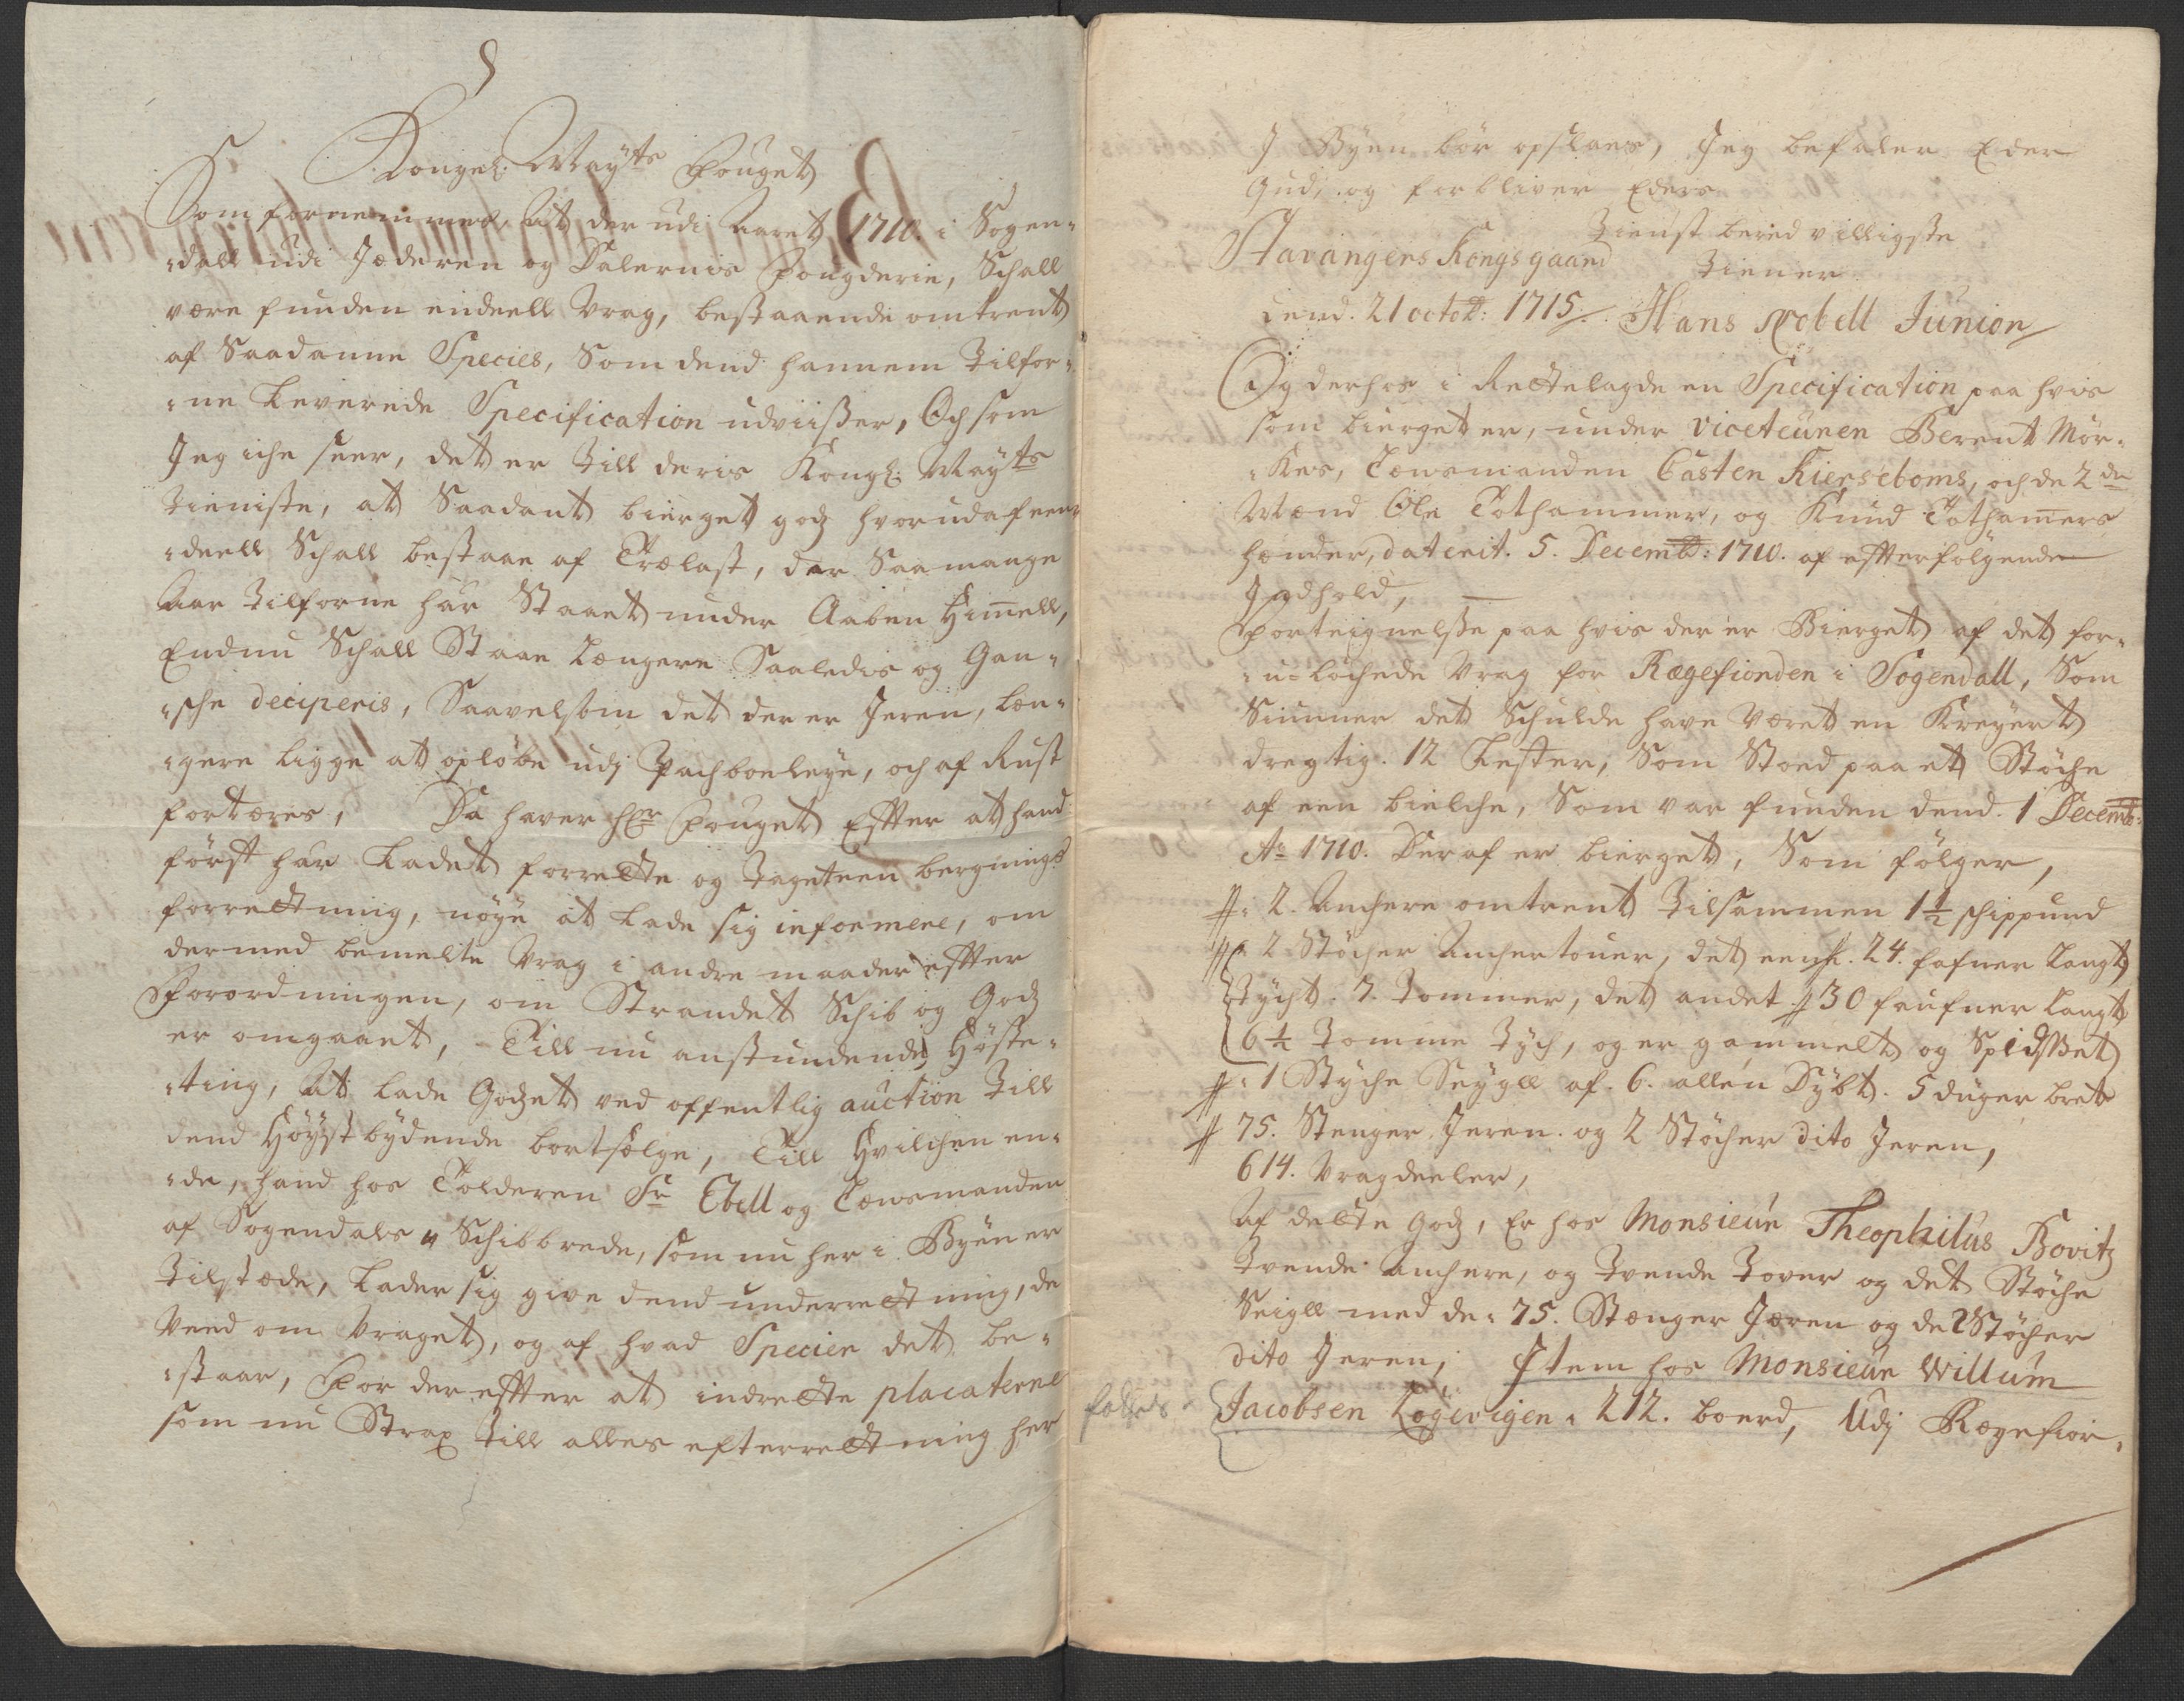 Kongel: Mayts Fouget
Som fornemmes, at der udi Aaret 1710. i Sogen-
dall udi Jæderen og Dalernis Fougderie, Schall
være funden endeell Vrag, bestaaende omtrent
af Saadanne Species, Som dend hannem Tilfor-
ne Leverede Specification udviisser, Och som
Jeg iche seer, det er Till deris Kongl: Mayts
Tieniste, at Saadant bierget godz hvorudaf een
deell Schall bestaae af Trælast, der Saa mange
Aar Tilforne har Staaet under Aaben Himell,
Endnu Schall Staae Længere Saaledis og Gan-
sche deciperis, Saavelsom det der er Jeren, Læn-
gere ligge at opløbe udj Pachboeleye, och af Rust
fortæres, Da haver Hr Fouget Effter at hand
først har Ladet forrette og Tageteen bergnings
forretning, nøye at Lade sig informere, om
dermed bemelte Vrag i andre maader effter
Forordningen, om Strandet Schib og Godz
er omgaaet, Till nu anstundende Høste-
ting, At Lade Godzet ved offentlig auction Till
dend Høystbydende bortsælge, Till Hvilchen en-
de, hand hos Tolderen Sr Ebell og Lensmanden
af Sogendals Schibbrede, som nu her i Byen er
Tilstæde, Lader sig give dend underretning, de
Veed om Vraget, og af hvad Specier det be-
staar, For der effter at indrette placaterne
som nu Strax Till alles efterretning her
J Byen bør opslaaes, Jeg befaler Eder
Gud, og forbliver Eders
Tienstberedvilligste
Stavangers Kongsgaard Tiener
dend. 21 octob: 1715. Hans Nobell Junior
Og derhos i Rettelagde en Specification paa hvis
som bierget er, under viceteuren Berent Mør-
kes, Lensmanden Casten Kierseboms, och de 2de
Mænd Ole Tothammer, og Knud Tothamers
hænder, daterit. 5. Decemb: 1710. af effterfølgende
Indhold,
Forteignelsse paa hvis der er Bierget af det for-
u-lychede Vrag for Rægefiorden i Sogendall, Som
Siunner det Schulde have Været en Kreyert
dregtig. 12 Lester, Som Stoed paa et Støche
af een bielche, Som var funden dend. 1 Decemb:
Ao 1710. Deraf er bierget, Som følger,
2. Anchere omtrent Tilsammen 1½ schippund
2 Støcher Anchertouer, det een. 24. fafner Langt
Tycht. 7. Tommer, det andet 30 faufner Langt
6½ Tomme Tych, og er gammelt og Splidsset
1 Styche Seygll af. 6. allen Dybt. 5 duger bret
75. Stenger Jeren. og 2 Støcher dito Jeren,
614. Vragdeeler,
Af dette godz, Er hos Monsieur Theophilus Bovitz
Tvende Anchere, og Tvende Tover og det Støche
Seigll med de 75. Stænger Jæren og de 2 Støcher
dito Jeren; Item hos Monsieur Willum
Jacobsen Løgevigen 212. boerd, Udj Rægefior-